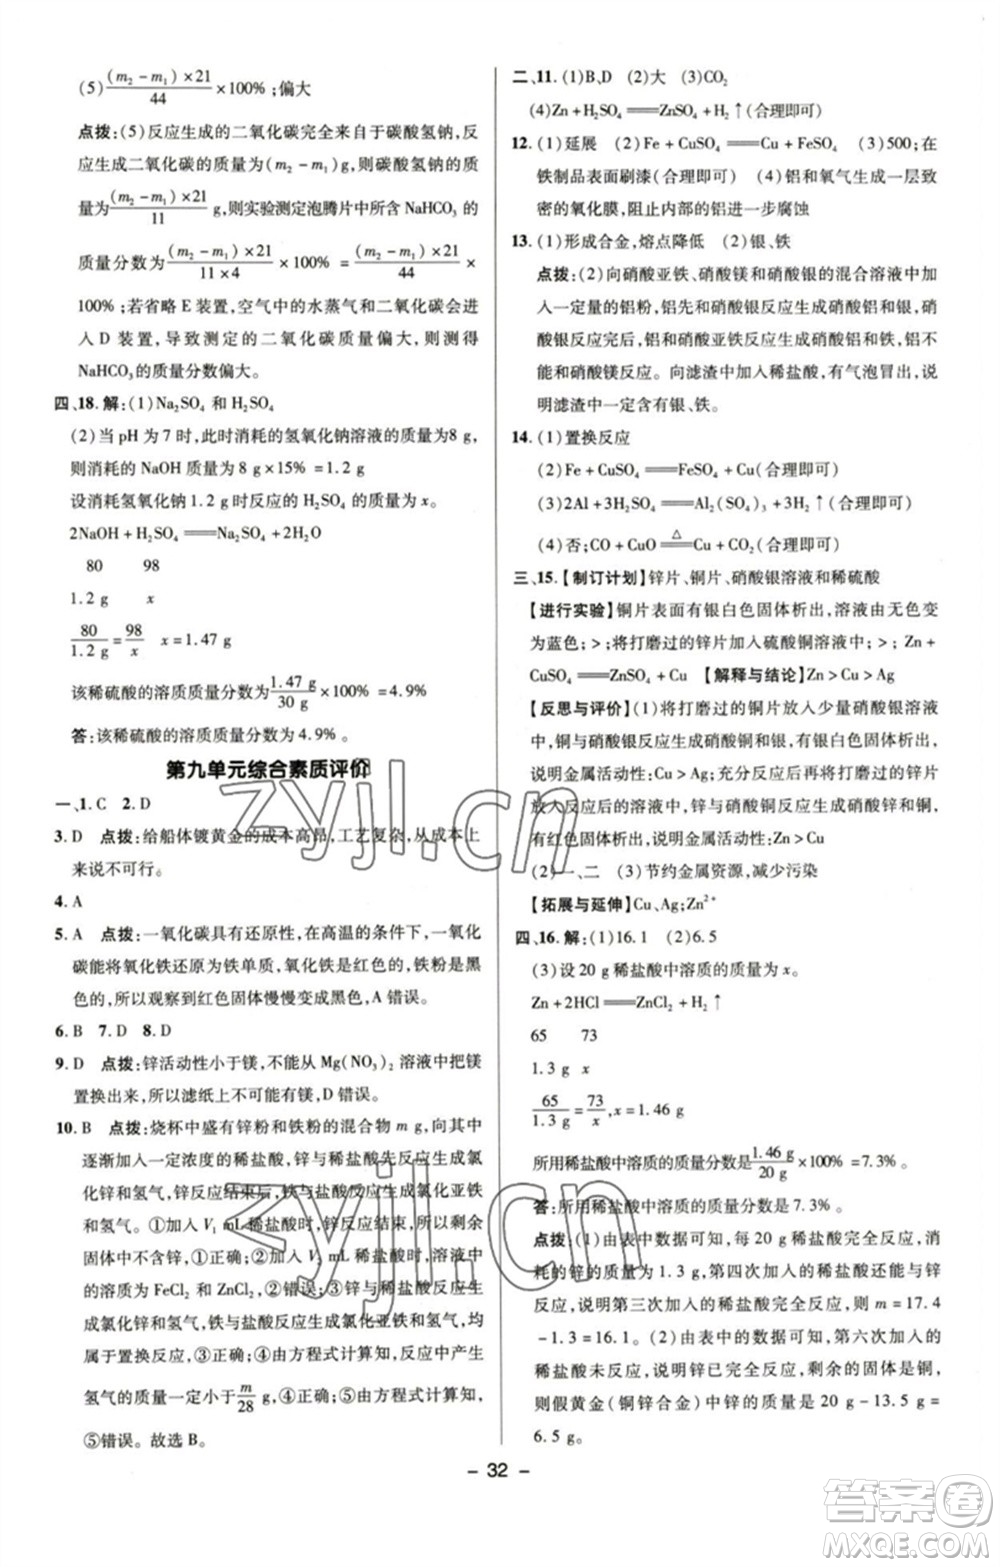 (5) (m₂－m₁)×21/44 ×100%;偏大
点拨:(5)反应生成的二氧化碳完全来自于碳酸氢钠,反
应生成二氧化碳的质量为(m₂－m₁)g,则碳酸氢钠的质量为
(m₂－m₁)×21/11 g,则实验测定泡腾片中所含NaHCO₃的
质量分数为 (m₂－m₁)×21/11×4 ×100% = (m₂－m₁)×21/44 ×
100%;若省略E装置,空气中的水蒸气和二氧化碳会进
入D装置,导致测定的二氧化碳质量偏大,则测得
NaHCO₃的质量分数偏大。
四、18.解:(1)Na₂SO₄ 和 H₂SO₄
(2)当pH为7时,此时消耗的氢氧化钠溶液的质量为8 g,
则消耗的NaOH质量为8 g×15%=1.2 g
设消耗氢氧化钠1.2 g时反应的H₂SO₄质量为x。
2NaOH+H₂SO₄══Na₂SO₄+2H₂O
80 98
1.2 g x
80/1.2 g=98/x x=1.47 g
该稀硫酸的溶质质量分数为 1.47 g/30 g ×100%=4.9%
答:该稀硫酸的溶质质量分数为4.9%。
第九单元综合素质评价
一、1.C 2.D
3.D 点拨:给船体镀黄金的成本高昂,工艺复杂,从成本上
来说不可行。
4.A
5.A 点拨:一氧化碳具有还原性,在高温的条件下,一氧化
碳能将氧化铁还原为铁单质,氧化铁是红色的,铁粉是黑
色的,所以观察到红色固体慢慢变成黑色,A错误。
6.B 7.D 8.D
9.D 点拨:锌活动性小于镁,不能从Mg(NO₃)₂溶液中把镁
置换出来,所以滤纸上不可能有镁,D错误。
10.B 点拨:烧杯中盛有锌粉和铁粉的混合物m g,向其中
逐渐加入一定浓度的稀盐酸,锌与稀盐酸先反应生成氯
化锌和氢气,锌反应结束后,铁与盐酸反应生成氯化亚铁
和氢气。①加入V₁ mL稀盐酸时,锌反应结束,所以剩余
固体中不含锌,①正确;②加入V₂ mL稀盐酸时,溶液中的
溶质为FeCl₂和ZnCl₂,②错误;③锌与稀盐酸反应生
成氯化锌和氢气,铁与盐酸反应生成氯化亚铁和氢气,均
属于置换反应,③正确;④由方程式计算知,反应中产生
氢气的质量一定小于m/28 g,④正确;⑤由方程式计算知,
⑤错误。故选B。
二、11.(1)B、D (2)大 (3)CO₂
(4)Zn+H₂SO₄══ZnSO₄+H₂↑(合理即可)
12.(1)延展 (2)Fe+CuSO₄══Cu+FeSO₄ (3)500;在
铁制品表面刷漆(合理即可) (4)铝和氧气生成一层致
密的氧化膜,阻止内部的铝进一步腐蚀
13.(1)形成合金,熔点降低 (2)银、铁
点拨:(2)向硝酸亚铁、硝酸镁和硝酸银的混合溶液中加
入一定量的铝粉,铝先和硝酸银反应生成硝酸铝和银,硝
酸银反应完后,铝和硝酸亚铁反应生成硝酸铝和铁,铝不
能和硝酸镁反应。向滤渣中加入稀盐酸,有气泡产生,说
明滤渣中一定含有银、铁。
14.(1)置换反应
(2)Fe+CuSO₄══FeSO₄+Cu(合理即可)
(3)2Al+3H₂SO₄══Al₂(SO₄)₃+3H₂↑(合理即可)
(4)否;CO+CuO═△═Cu+CO₂(合理即可)
三、15.【制订计划】锌片、铜片、硝酸银溶液和稀硫酸
【进行实验】铜片表面有银白色固体析出,溶液由无色变
为蓝色;>;将打磨过的锌片加入硫酸铜溶液中;>;Zn+
CuSO₄══ZnSO₄+Cu 【解释与结论】Zn>Cu>Ag
【反思与评价】(1)将打磨过的铜片放入少量硝酸银溶液
中,充分反应后,说明金属活动性:Cu>Ag;再将打磨过的锌片
放入反应后的溶液中,锌与硝酸铜反应生成硝酸锌和铜,
有红色固体析出,说明金属活动性:Zn>Cu
(2)一、二 (3)节约金属资源,减少污染
【拓展与延伸】Cu、Ag;Zn²⁺
四、16.解:(1)16.1 (2)6.5
(3)设20 g稀盐酸中溶质的质量为x。
Zn+2HCl══ZnCl₂+H₂↑
65 73
1.3 g x
65/1.3 g=73/x,x=1.46 g
所用稀盐酸中溶质的质量分数是 1.46 g/20 g ×100%=7.3%。
答:所用稀盐酸中溶质的质量分数是7.3%。
点拨:(1)由表中数据可知,每20 g稀盐酸完全反应,消
耗的锌的质量为1.3 g,第四次加入的稀盐酸还能与锌
反应,说明第三次加入的稀盐酸完全反应,则m=17.4
－1.3=16.1。(2)由表中的数据可知,第六次加入的
稀盐酸未反应,说明锌已完全反应,剩余的固体是铜,
则假黄金(铜锌合金)中锌的质量为20 g－13.5 g=
6.5 g。
－32－
zyjl.cn
zyjl.cn
答案圈
MXQE.COM